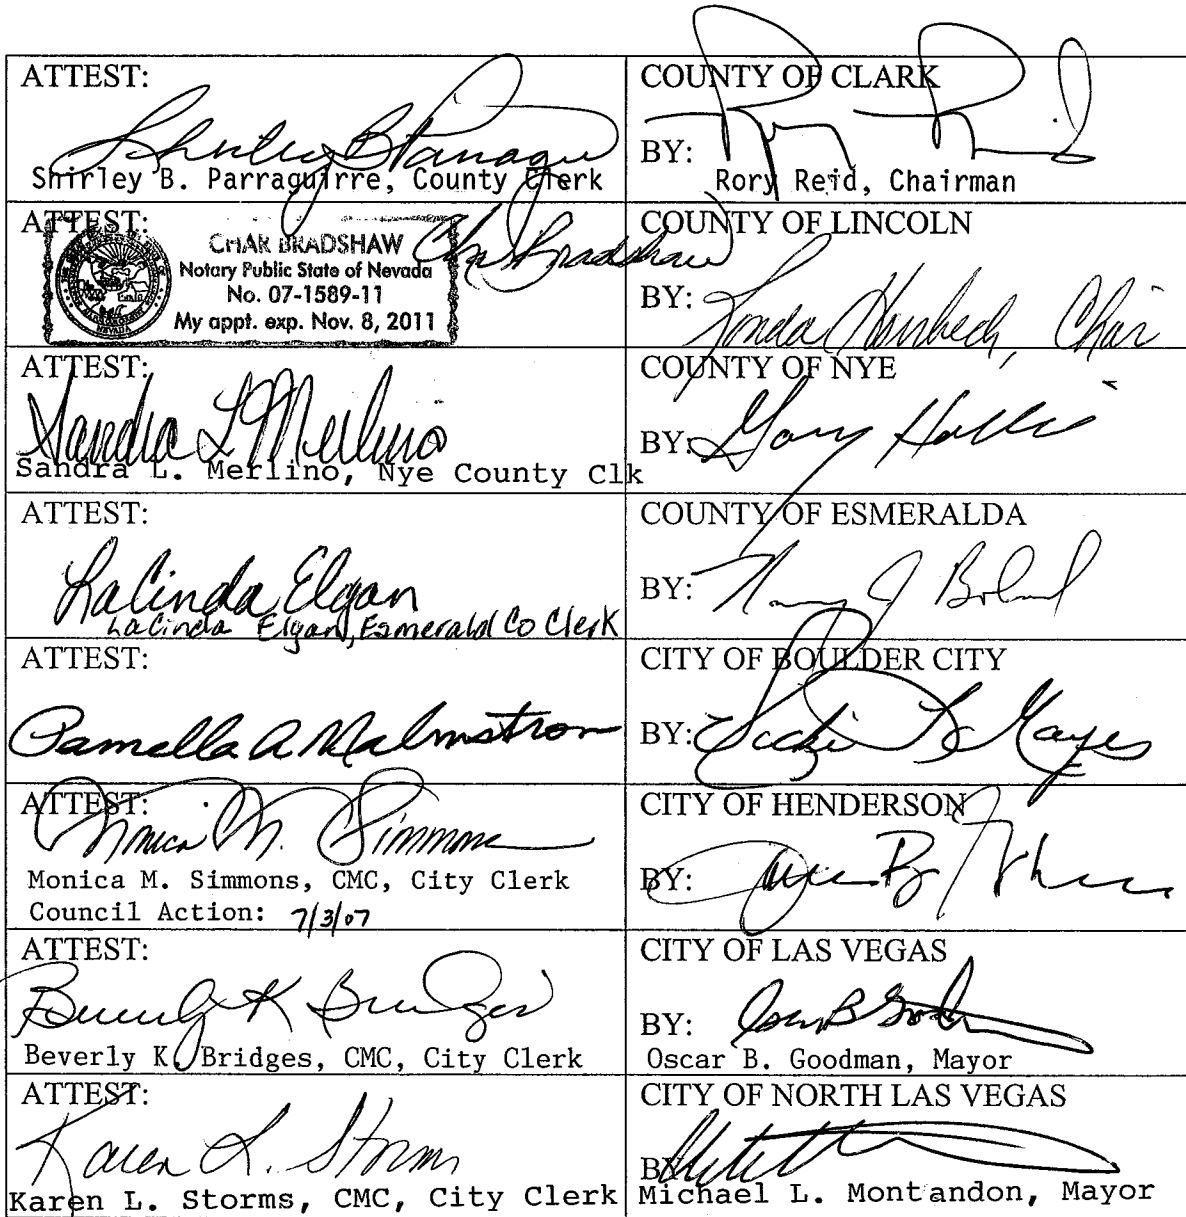 ATTEST:
Shirley B Parragui
Shirley B. Parraguirre, County Clerk
COUNTY OF CLARK
BY: Rory Reid
Rory Reid, Chairman
ATTEST:
CHAR BRADSHAW
Notary Public State of Nevada
No. 07-1589-11
My appt. exp. Nov. 8, 2011
Char Bradshaw
COUNTY OF LINCOLN
BY: Ronda Hornbeck, Chair
ATTEST:
Sandra L Merlino
Sandra L. Merlino, Nye County Clk
COUNTY OF NYE
BY: Gary Hollis
ATTEST:
LaCinda Elgan
LaCinda Elgan, Esmerald Co Clerk
COUNTY OF ESMERALDA
BY: Nancy J Boland
ATTEST:
Pamella A Malmstrom
CITY OF BOULDER CITY
BY:
ATTEST:
Monica M. Simmons
Monica M. Simmons, CMC, City Clerk
Council Action: 7/3/07
CITY OF HENDERSON
BY:
ATTEST:
Beverly K Bridges
Beverly K. Bridges, CMC, City Clerk
CITY OF LAS VEGAS
BY: Oscar B Goodman
Oscar B. Goodman, Mayor
ATTEST:
Karen L. Storms
Karen L. Storms, CMC, City Clerk
CITY OF NORTH LAS VEGAS
BY
Michael L. Montandon, Mayor